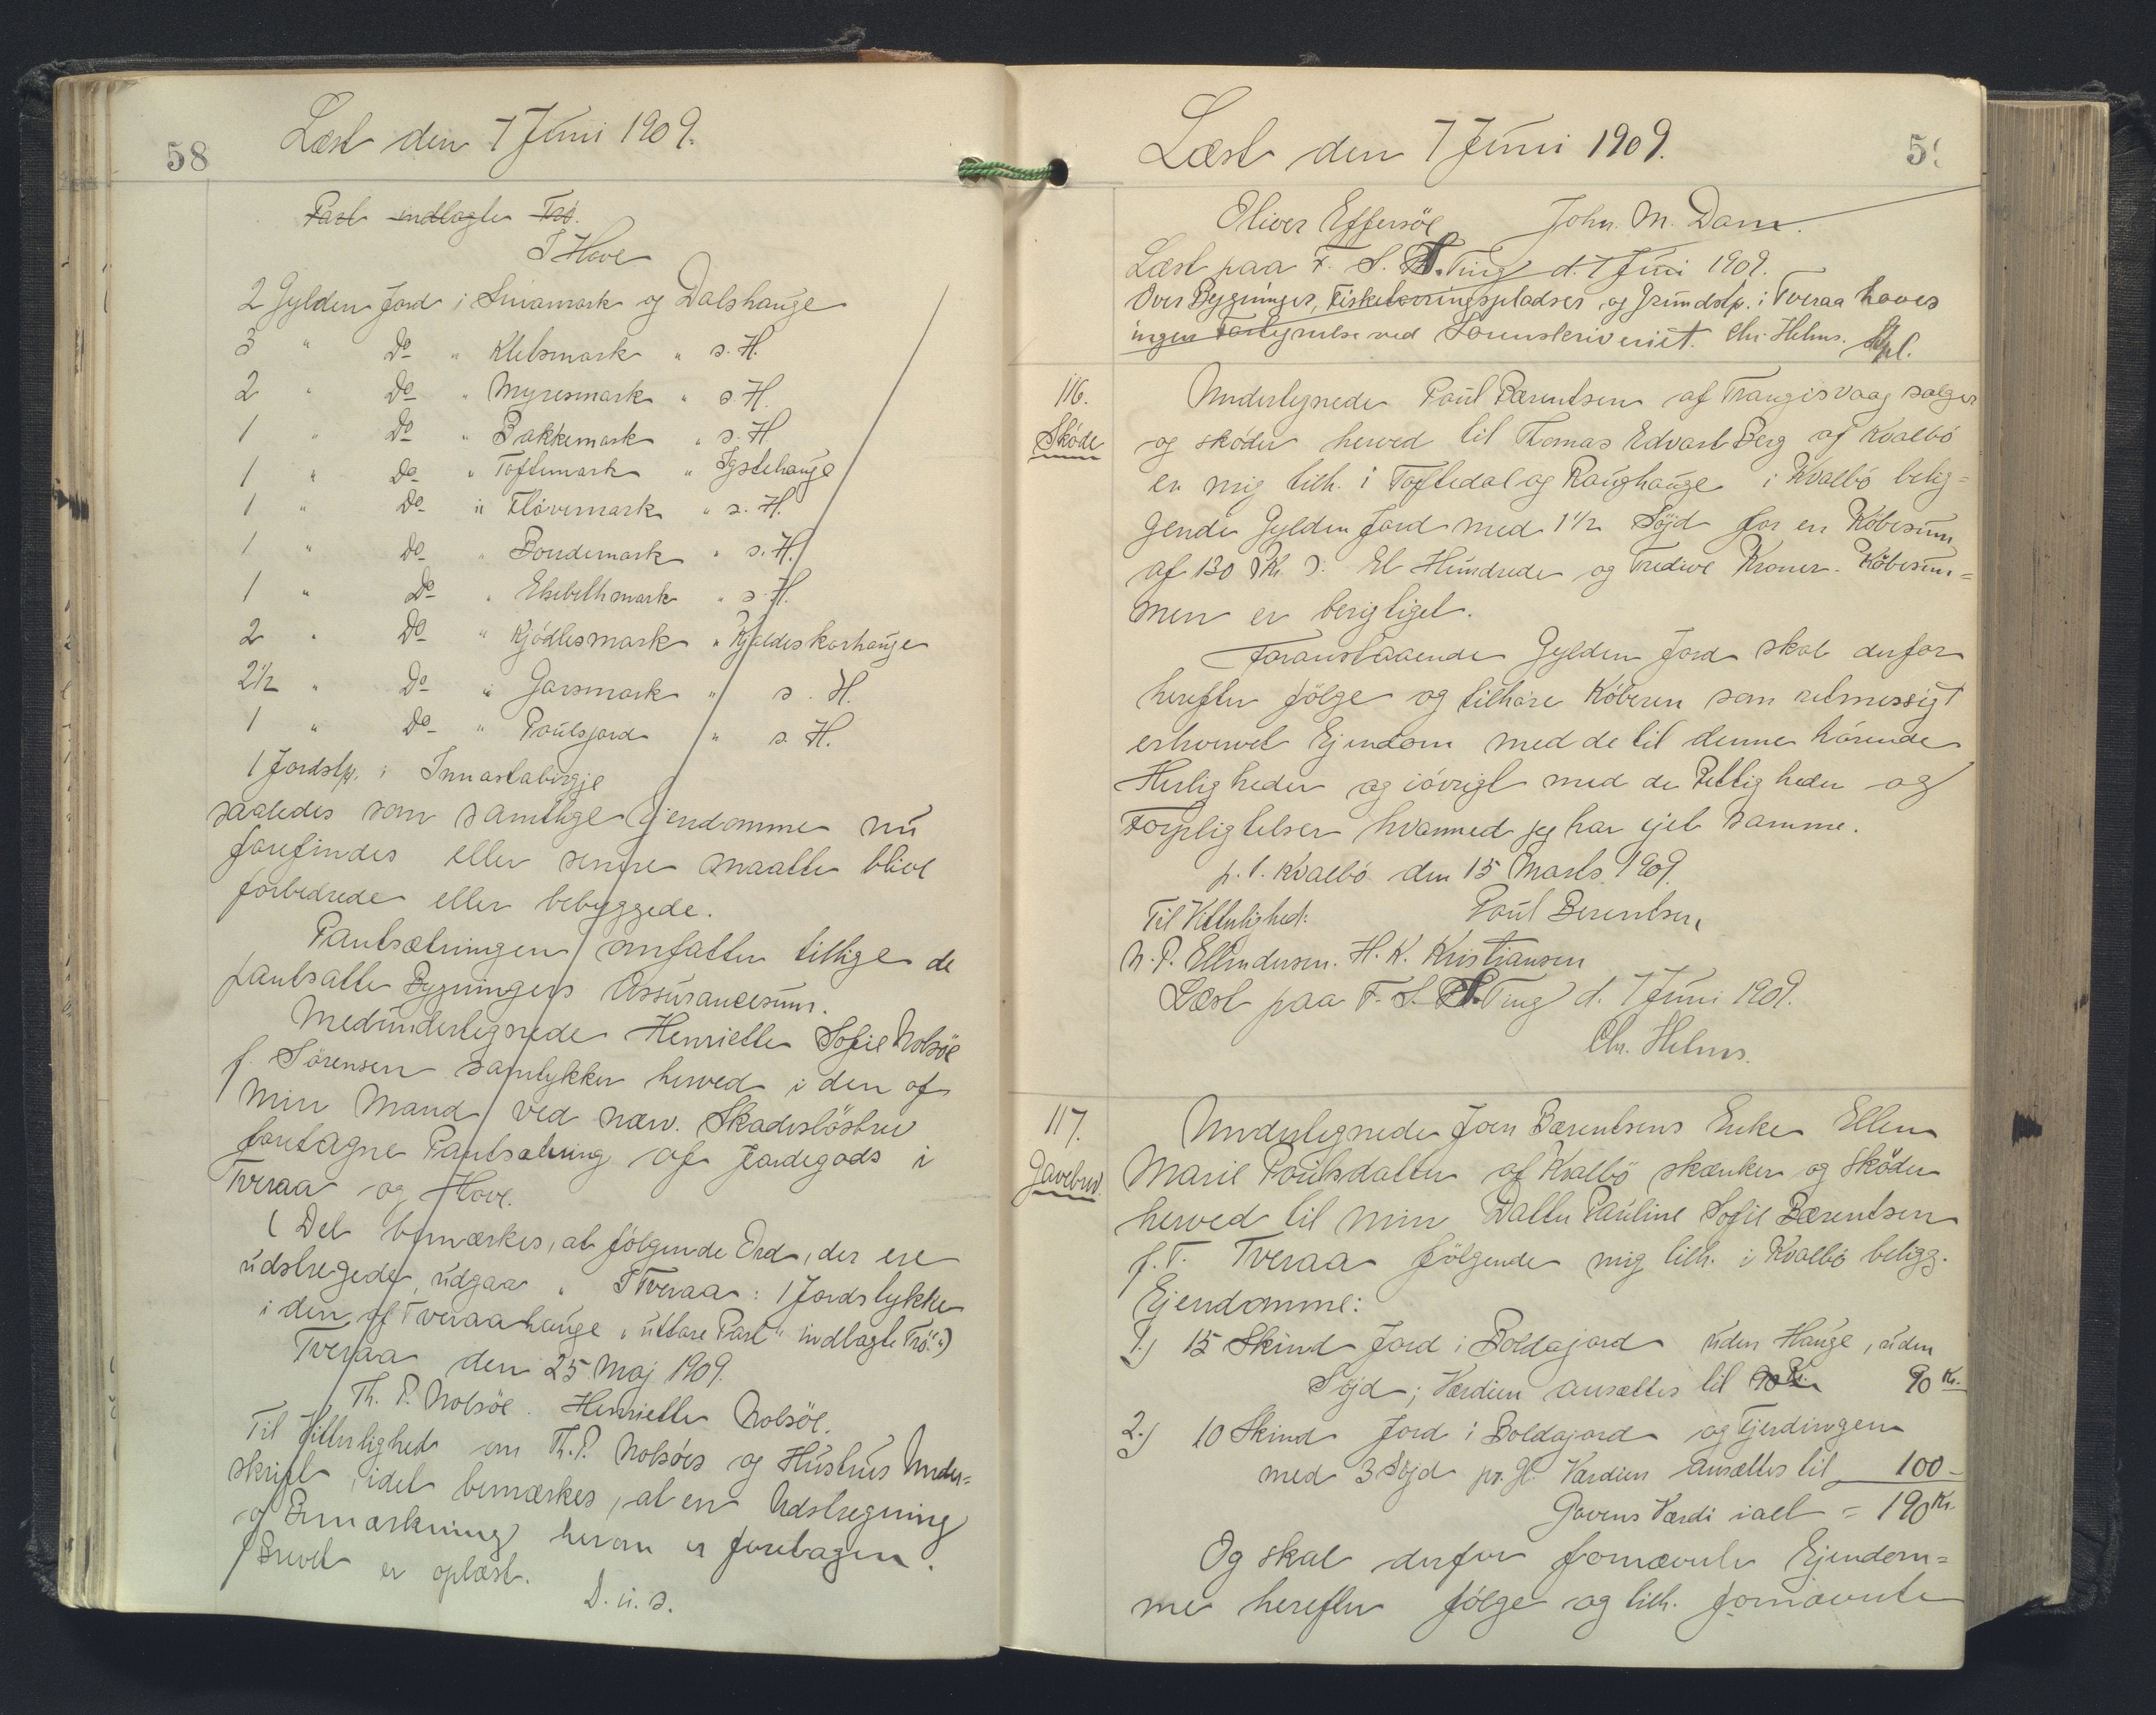 58
Læst den 7 Juni 1909.
Part indlagte Trö.
I Hove
2 Gylden Jord i Sniamark og Dalshauge
3 " Do " Kletsmark " s. H.
2 " Do " Myresmark " s. H.
1 " Do " Bakkemark " s. H.
1 " Do " Toftemark " Igstehauge
1 " Do " Flövemark " s. H.
1 " Do " Bondemark " s. H.
1 " Do " Elsebethmark " s. H.
2 " Do " Kjödlesmark " Kjeldeskarhauge
2 1/2 " Do " Garsmark " s. H.
1 " Do " Poulsjord " s. H.
1 Jordstk. i Innastabirgje
saaledes som samtlige Ejendomme nu
forefindes eller senere maatte blive
forbedrede eller bebyggede.
Pantsætningen omfatter tillige de
pantsatte Bygningers Assurancesum.
Medundertegnede Henriette Sofie Nolsöe
f. Sörensen samtykker herved i den af
min Mand ved nærv. Skadeslösbrev
foretagne Pantsætning af Jordegods i
Tveraa og Hove.
(Det bemærkes, at fölgende Ord, der ere
udstregede, udgaa " I Tveraa: 1 Jordstykke
i den af Tveraahauge "uttare Part" indlagte Trö".)
Tveraa den 25 Maj 1909.
Th. P. Nolsöe. Henriette Nolsöe.
Til Vitterlighed om Th. P. Nolsöes og Hustrus Under=
skrift, idet bemærkes, at en Udstregning
og Bemærkning herom er foretagen.
Brevet er oplæst.
D. u. s.
Læst den 7 Juni 1909.
59
Oliver Effersöe John. M. Dam.
Læst paa F. S. S. Ting d. 7 Juni 1909.
Over Bygninger, Fisketörringspladser og Grundstk. i Tveraa haves
ingen Forsynelse ved Sorenskriveriet. Chr. Helms.
116.
Sköde
Undertegnede Poul Bærentsen af Trangisvaag sælger
og sköder herved til Thomas Edvart Berg af Kvalbö
en mig tilh. i Toftedal og Raughauge i Kvalbö belig=
gende Gylden Jord med 1 1/2 Söjd for en Köbesum
af 130 Kr. ɔ: Et Hundrede og Tredive Kroner. Köbesum=
men er berigtiget.
Foranstaaende Gylden Jord skal derfor
herefter fölge og tilhöre Köberen som retmessigt
erhvervet Ejendom med de til denne hörende
Herligheder og iövrigt med de Rettigheder og
Forpligtelser hvormed jeg har ejet samme.
p. t. Kvalbö den 15 Marts 1909.
Til Vitterlighed: Poul Berentsen,
N. P. Ellindersen. H. K. Kristiansen
Læst paa F. S. S. Ting d. 7 Juni 1909.
Chr. Helms.
117.
Gavebrev.
Undertegnede Joen Bærentsens Enke Ellen
Marie Poulsdatter af Kvalbö skænker og sköder
herved til min Datter Pauline Sofie Bærentsen
f. T. Tveraa fölgende mig tilh. i Kvalbö beligg.
Ejendomme:
1.) 15 Skind Jord i Boldajord uden Hauge, uden
Söjd; Værdien ansættes til 90 Kr. 90 Kr.
2.) 10 Skind Jord i Boldajord og Fjerdingen
med 3 Söjd pr. Gl. Værdien ansættes til 100 -
Gavens Værdi ialt = 190 Kr.
Og skal derfor fornævnte Ejendom=
me herefter fölge og tilh. fornævnte